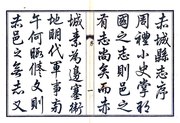 赤城縣志序
周禮小史掌邦
國之志則邑之
有志尚矣而赤
城素為邊塞衝
地明代軍事旁
午何暇修文則
赤邑之無志又